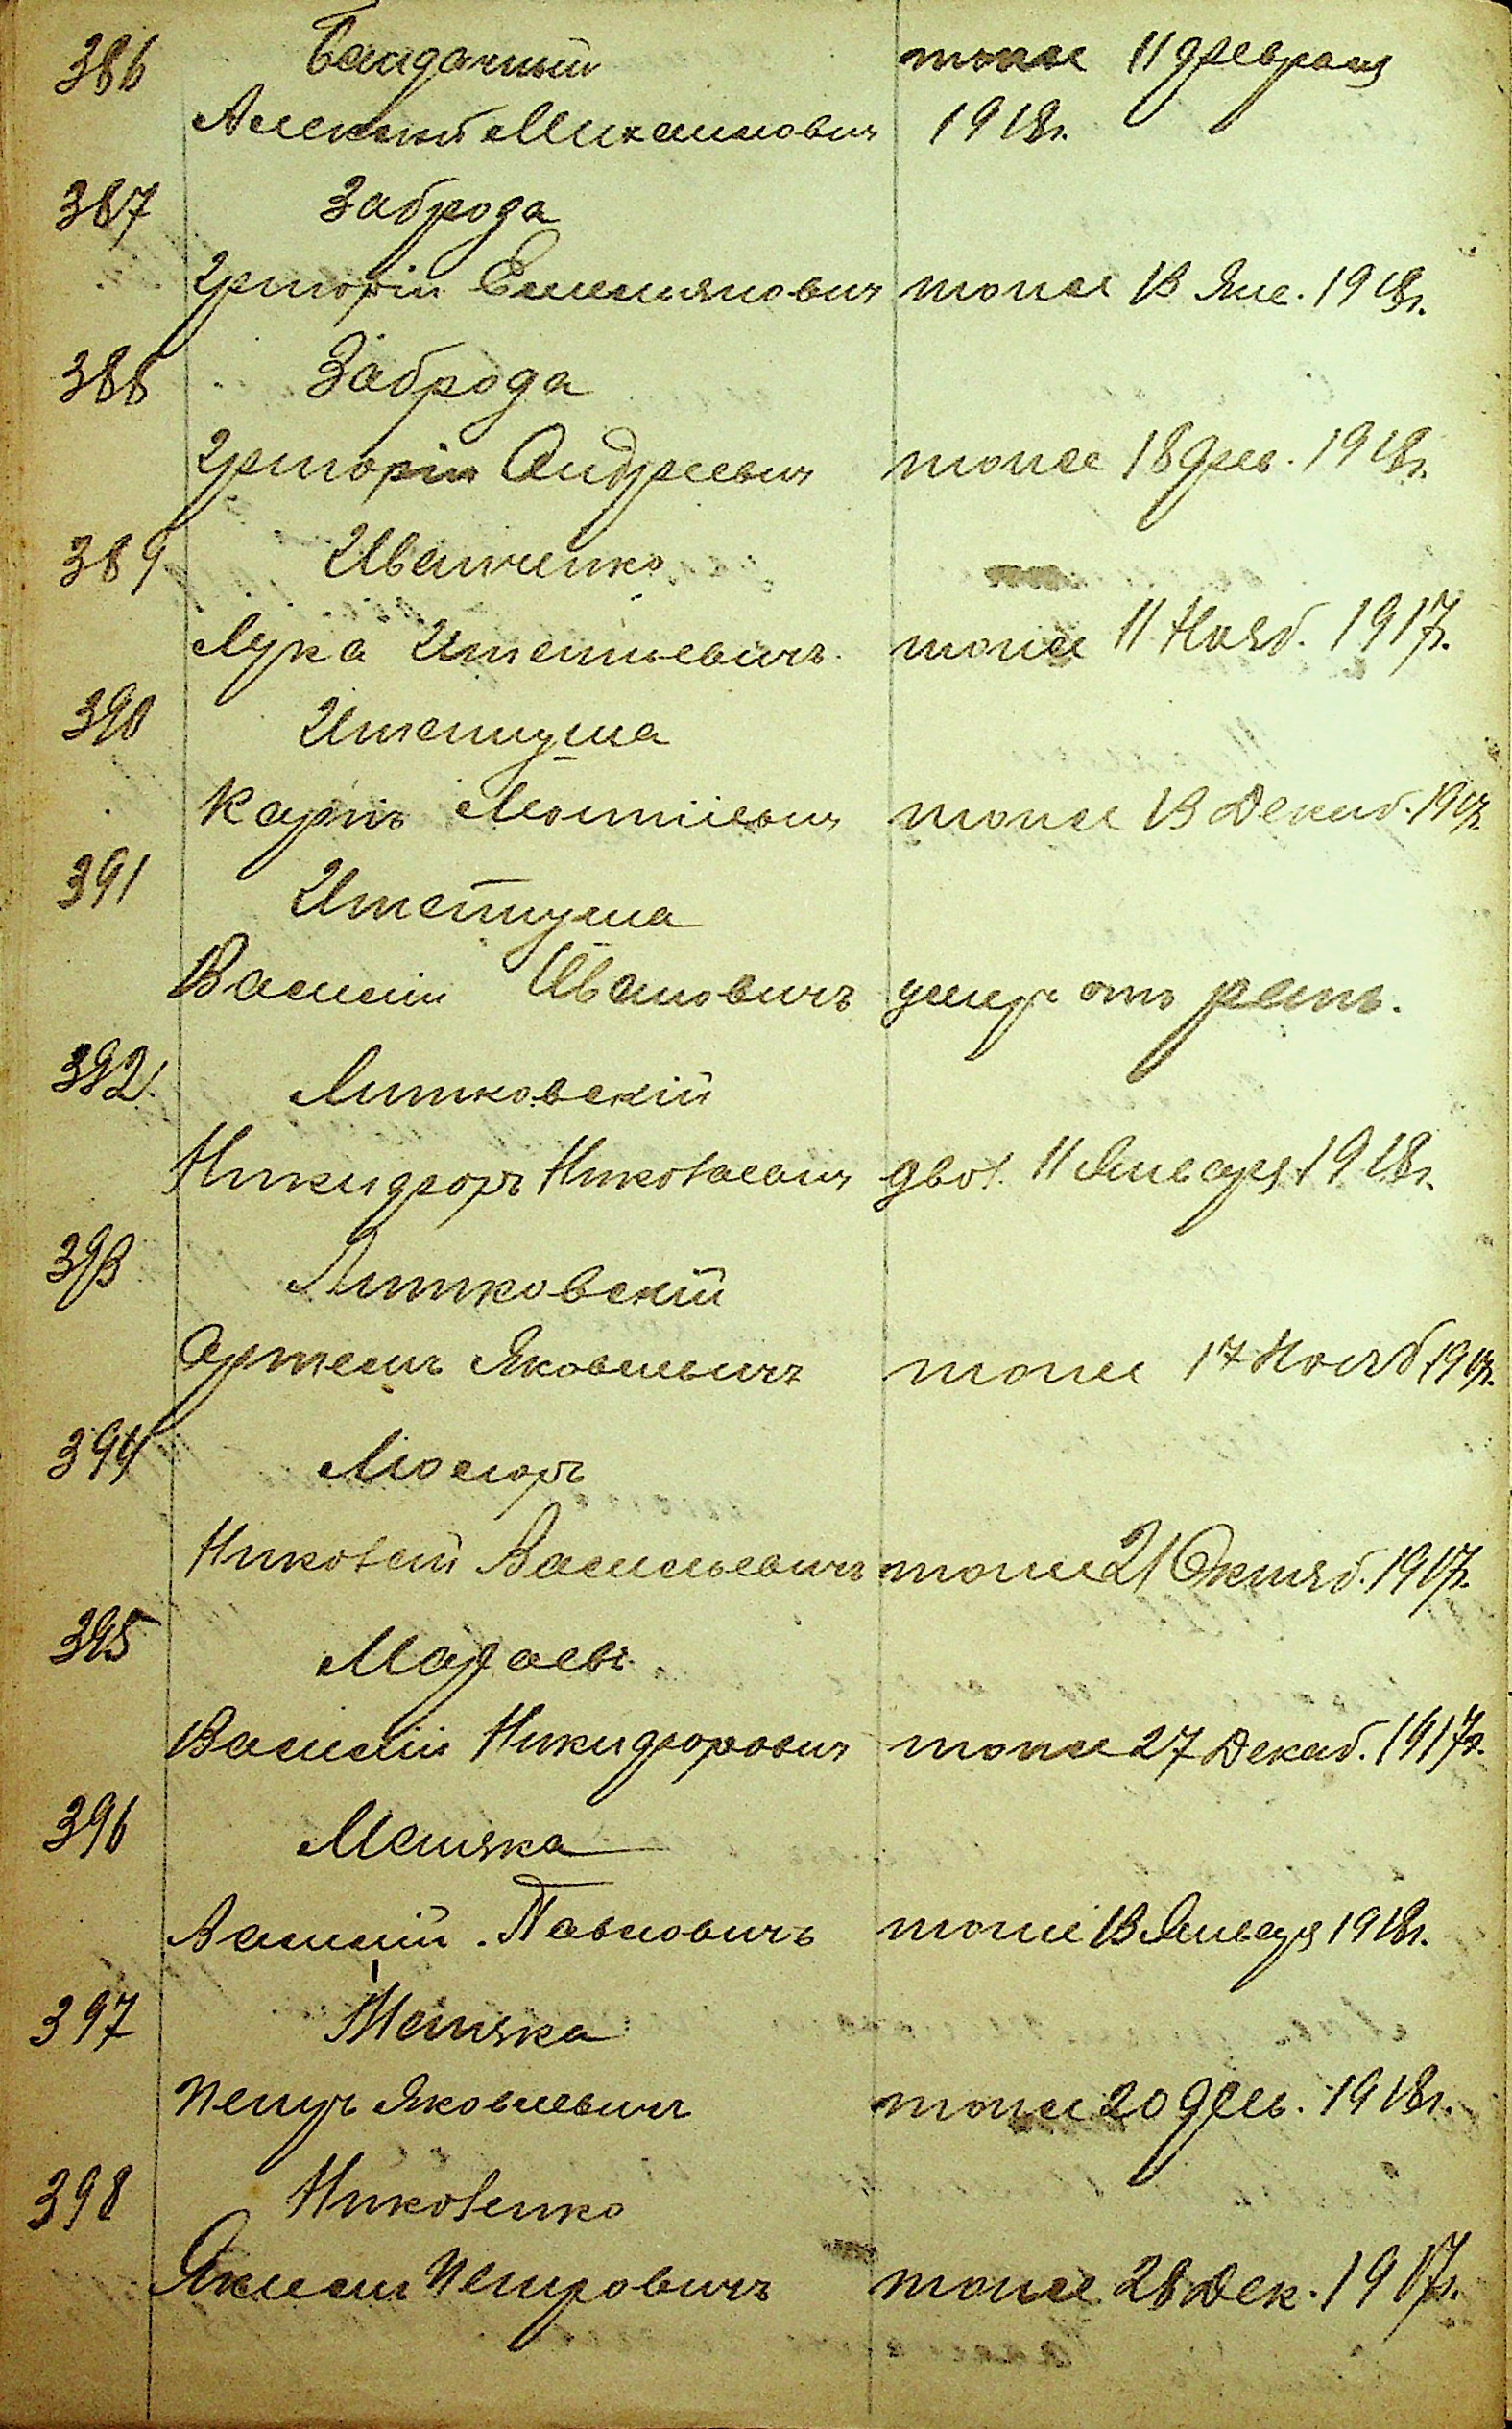 386 Бандачный тоже 11 февраля
Алексей Михаиловичъ 1918г.
387 Заброда
Григорій Емельяновичъ тоже 13 Янв. 1918г.
388 Заброда
Григорій Андреевичъ тоже 18 фев. 1918г.
389 Иванченко
Лука Игнатьевичъ тоже 11 Нояб. 1917г.
390
Карпъ тоже 13 Декаб. 1917г.
391
Василій Ивановичъ умеръ отъ ранъ.
392. Литковскій
Никифоръ Николаевичъ 11 Января 1918г.
393 Литковскій
Артемъ Яковлевичъ тоже 17 Нояб 1917г.
394
Николай Васильевичъ тоже 21 Октяб. 1917г.
395
Василій Никифоровичъ тоже 27 Декаб. 1917г.
396 Матяка
Василій Павловичъ тоже 13 Января 1918г.
397 Матяка
Петръ Яковлевичъ тоже 20 фев. 1918г.
398 Николенко
Якимъ Петровичъ тоже 28 Дек. 1917г.